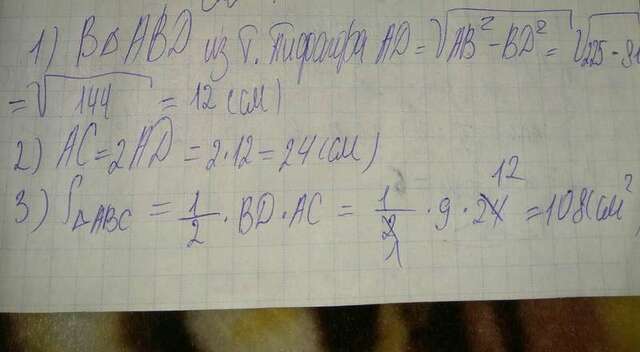 1) В △ ABD из т. Пифагора AD = √AB² - BD² = √225 - 81
= √144 = 12 (см)
2) AC = 2AD = 2·12 = 24 (см)
3) S△ABC = 1/2 · BD · AC = 1/2 · 9 · 24 12 = 108 (см²